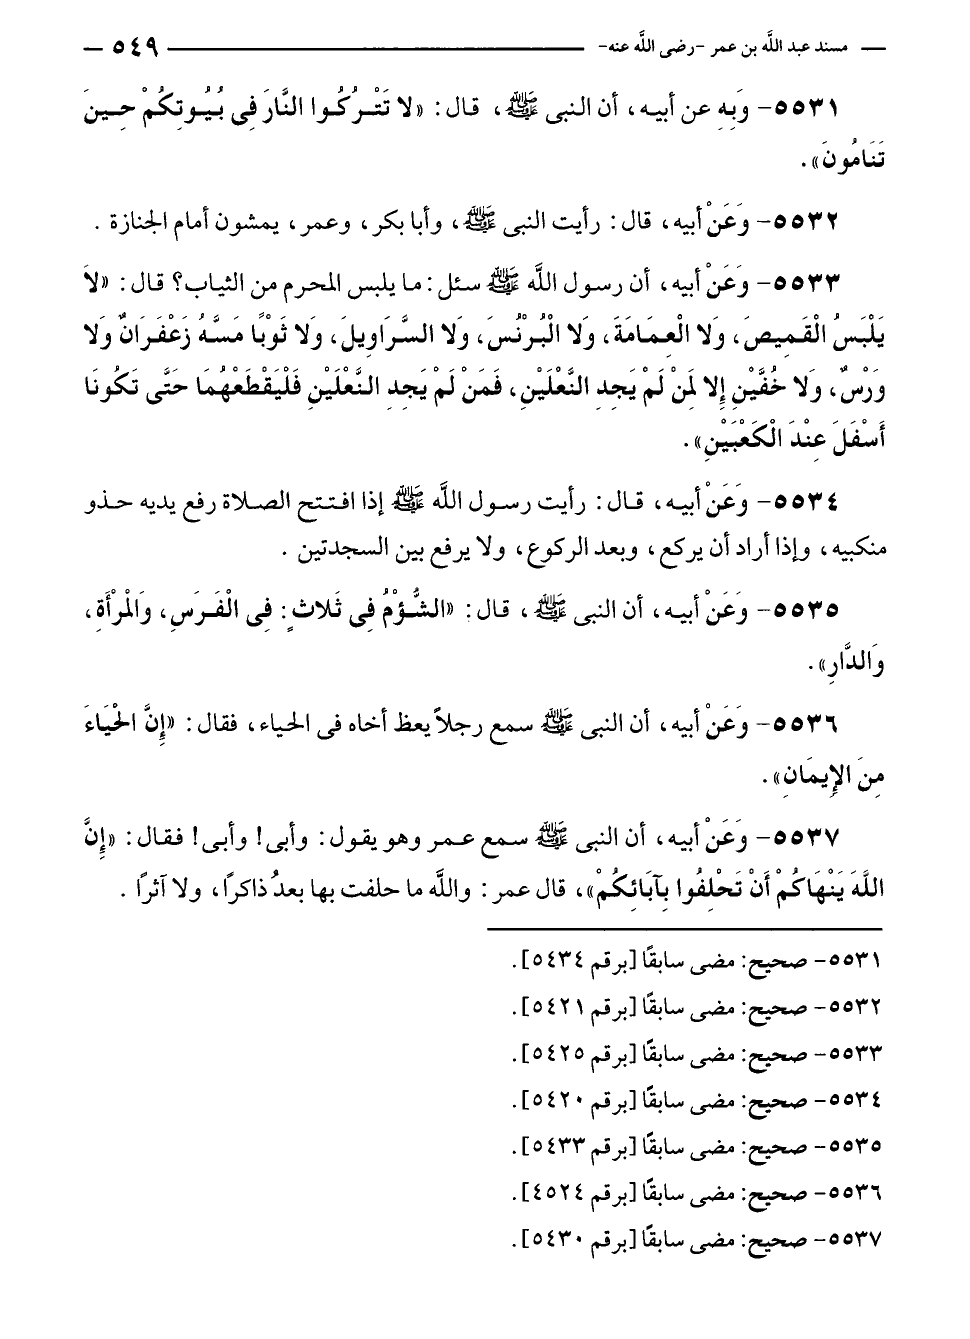 مسند عبد اللَّه بن عمر -رضى اللَّه عنه- ٥٤٩
٥٥٣١- وَبِهِ عن أبيه، أن النبى ﷺ، قال: «لا تَتْرُكُوا النَّارَ فِى بُيُوتِكُمْ حِينَ
تَنَامُونَ».
٥٥٣٢- وَعَنْ أبيه، قال: رأيت النبى ﷺ، وأبا بكر، وعمر، يمشون أمام الجنازة.
٥٥٣٣- وَعَنْ أبيه، أن رسول اللَّه ﷺ سئل: ما يلبس المحرم من الثياب؟ قال: «لاَ
يَلْبَسُ الْقَمِيصَ، وَلا الْعِمَامَةَ، وَلا الْبُرْنُسَ، وَلا السَّرَاوِيلَ، وَلا ثَوْبًا مَسَّهُ زَعْفَرَانٌ وَلا
وَرْسٌ، وَلا خُفَّيْنِ إِلا لِمَنْ لَمْ يَجِدِ النَّعْلَيْنِ، فَمَنْ لَمْ يَجِدِ النَّعْلَيْنِ فَلْيَقْطَعْهُمَا حَتَّى تَكُونَا
أَسْفَلَ عِنْدَ الْكَعْبَيْنِ».
٥٥٣٤- وَعَنْ أبيه، قال: رأيت رسول اللَّه ﷺ إذا افتتح الصلاة رفع يديه حذو
منكبيه، وإذا أراد أن يركع، وبعد الركوع، ولا يرفع بين السجدتين.
٥٥٣٥- وَعَنْ أبيه، أن النبى ﷺ، قال: «الشُّؤْمُ فِى ثَلاثٍ: فِى الْفَرَسِ، وَالْمْرْأَةِ،
وَالدَّارِ».
٥٥٣٦- وَعَنْ أبيه، أن النبى ﷺ سمع رجلاً يعظ أخاه فى الحياء، فقال: «إِنَّ الْحَيَاءَ
مِنَ الإِيمَانِ».
٥٥٣٧- وَعَنْ أبيه، أن النبى ﷺ سمع عمر وهو يقول: وأبى! وأبى! فقال: «إِنَّ
اللَّهَ يَنْهَاكُمْ أَنْ تَحْلِفُوا بِآبَائِكُمْ»، قال عمر: واللَّه ما حلفت بها بعدُ ذاكرًا، ولا آثرًا.
٥٥٣١- صحيح: مضى سابقًا [برقم ٥٤٣٤].
٥٥٣٢- صحيح: مضى سابقًا [برقم ٥٤٢١].
٥٥٣٣- صحيح: مضى سابقًا [برقم ٥٤٢٥].
٥٥٣٤- صحيح: مضى سابقًا [برقم ٥٤٢٠].
٥٥٣٥- صحيح: مضى سابقًا [برقم ٥٤٣٣].
٥٥٣٦- صحيح: مضى سابقًا [برقم ٤٥٢٤].
٥٥٣٧- صحيح: مضى سابقًا [برقم ٥٤٣٠].